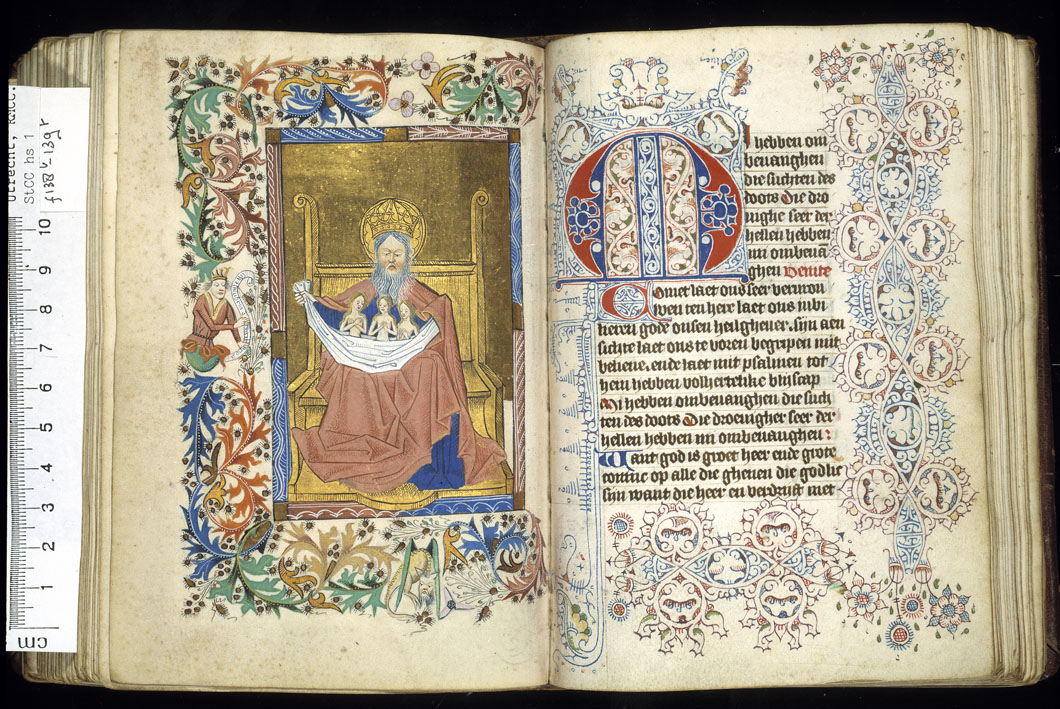 Utrecht, RMCC.
StCC hs 1
f 138 v - 139 r
10
9
8
7
6
5
4
3
2
1
cm
M
I hebben om
beuanghen
die suchten des
doots Die dro
uighe seer der
hellen hebben
mi ombeuā
ghen Venite
Comet laet ons seer verurou
wen ten heer laet ons iubi
leren gode onsen heilgheuer. sijn aen
sichte laet ons te voren begripen mit
beliene. ende laet mit psalmen tot
hem hebben volhertelike bliscap
Mi hebben ombeuanghen die such
ten des doots Die droeuigher seer der
hellen hebben mi ombeuanghen:
Want god is groet heer ende grote
coninc op alle die gheuen die godlic
sijn want die heer en verdrijft niet